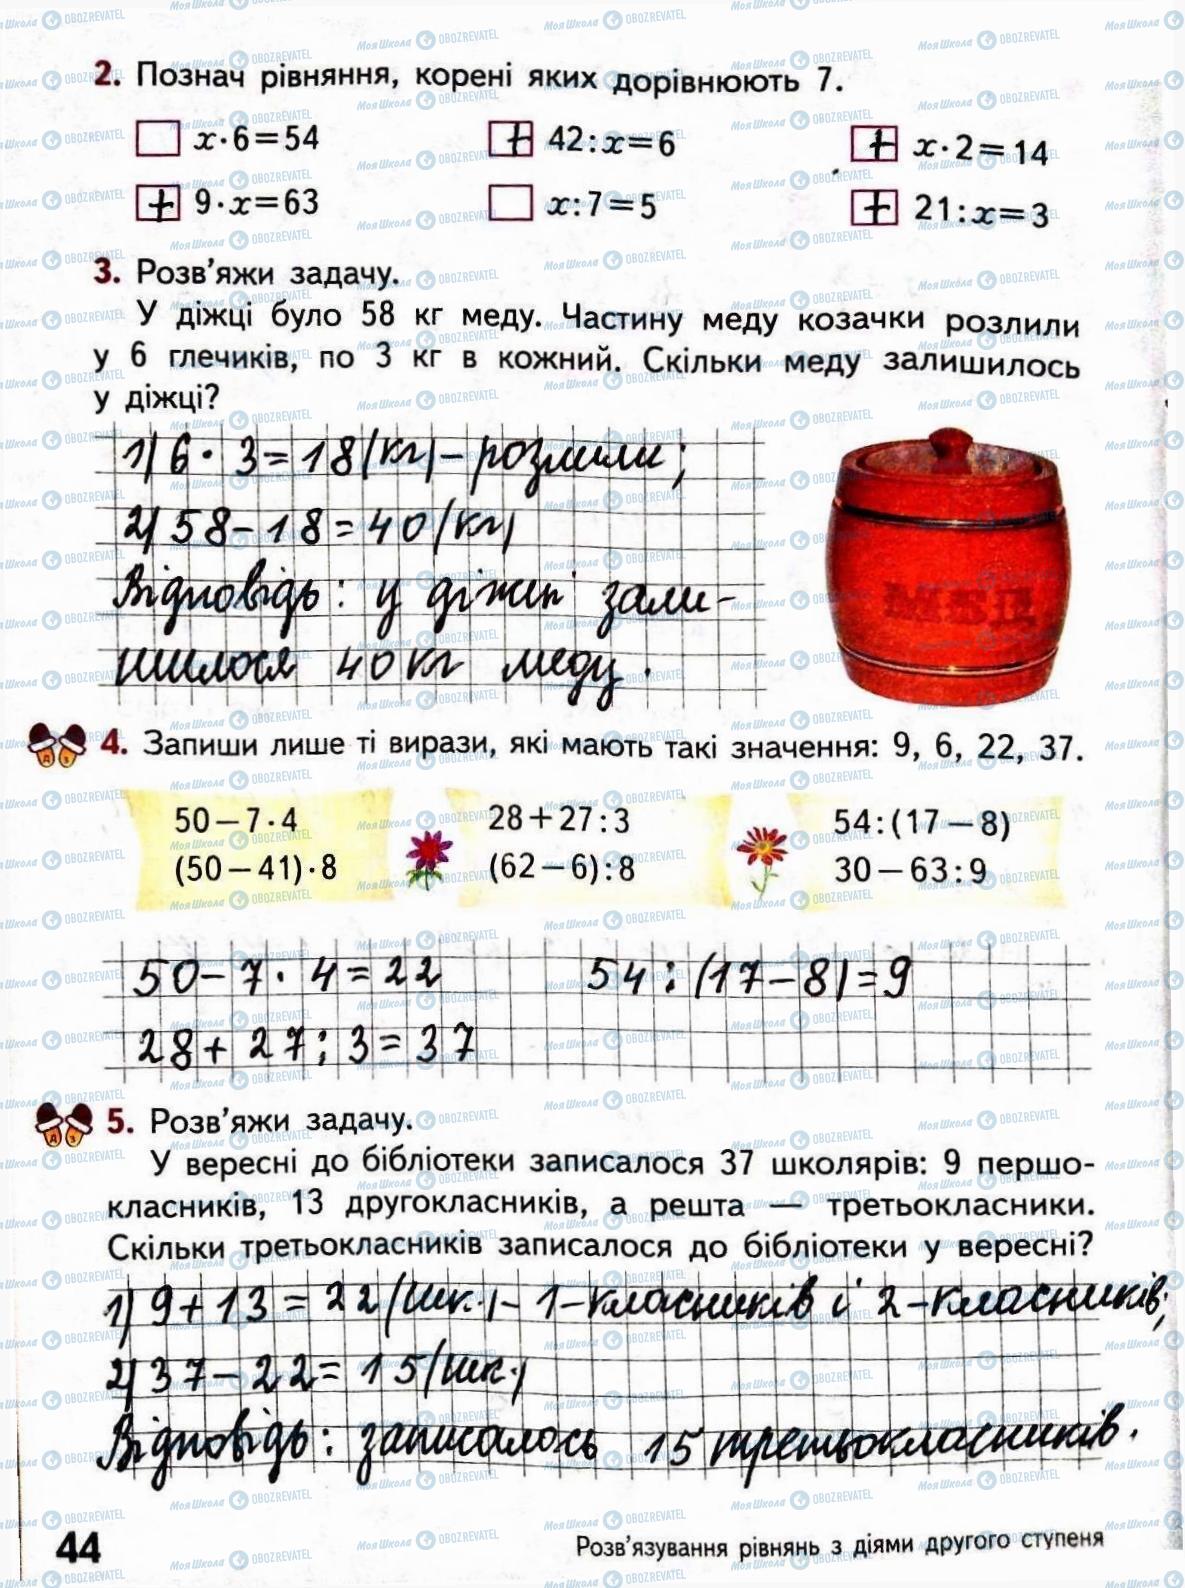 2. Познач рівняння, корені яких дорівнюють 7.
x·6=54
+ 42:x=6
+ x·2=14
+ 9·x=63
x:7=5
+ 21:x=3
3. Розв'яжи задачу.
У діжці було 58 кг меду. Частину меду козачки розлили
у 6 глечиків, по 3 кг в кожний. Скільки меду залишилось
у діжці?
1) 6 · 3=18(кг) – розлили;
2) 58–18=40(кг)
МЕД
Відповідь: у діжці зали-
шилося 40 кг меду.
4. Запиши лише ті вирази, які мають такі значення: 9, 6, 22, 37.
50–7·4
28+27:3
54:(17–8)
(50–41)·8
(62–6):8
30–63:9
50–7·4=22
54:(17–8)=9
28+27:3=37
5. Розв'яжи задачу.
У вересні до бібліотеки записалося 37 школярів: 9 першо-
класників, 13 другокласників, а решта — третьокласники.
Скільки третьокласників записалося до бібліотеки у вересні?
1) 9+13=22(шк.) – 1-класників і 2-класників;
2) 37–22=15(шк.)
Відповідь: записалось 15 третьокласників.
44
Розв'язування рівнянь з діями другого ступеня
Моя Школа OBOZREVATEL